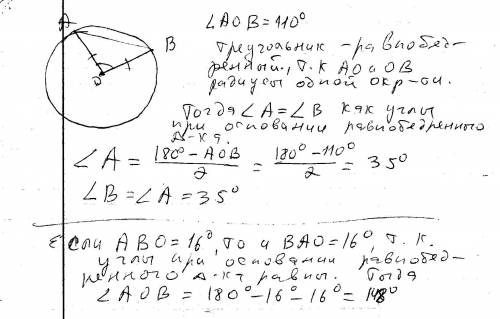 A
B
O
∠AOB = 110°
Треугольник - равнобед-
ренный, т.к AO и OB
радиусы одной окр-ти.
Тогда ∠A = ∠B как углы
при основании равнобедренного
Δ-ка.
∠A = (180° - AOB)/2 = (180° - 110°)/2 = 35°
∠B = ∠A = 35°
Если ABO = 16°, то и BAO = 16°, т.к.
углы при основании равнобед-
ренного Δ-ка равны. Тогда
∠AOB = 180° - 16° - 16° = 148°